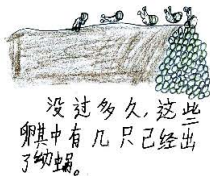 没过多久,这些
卵其中有几只已经出
了幼蜗。